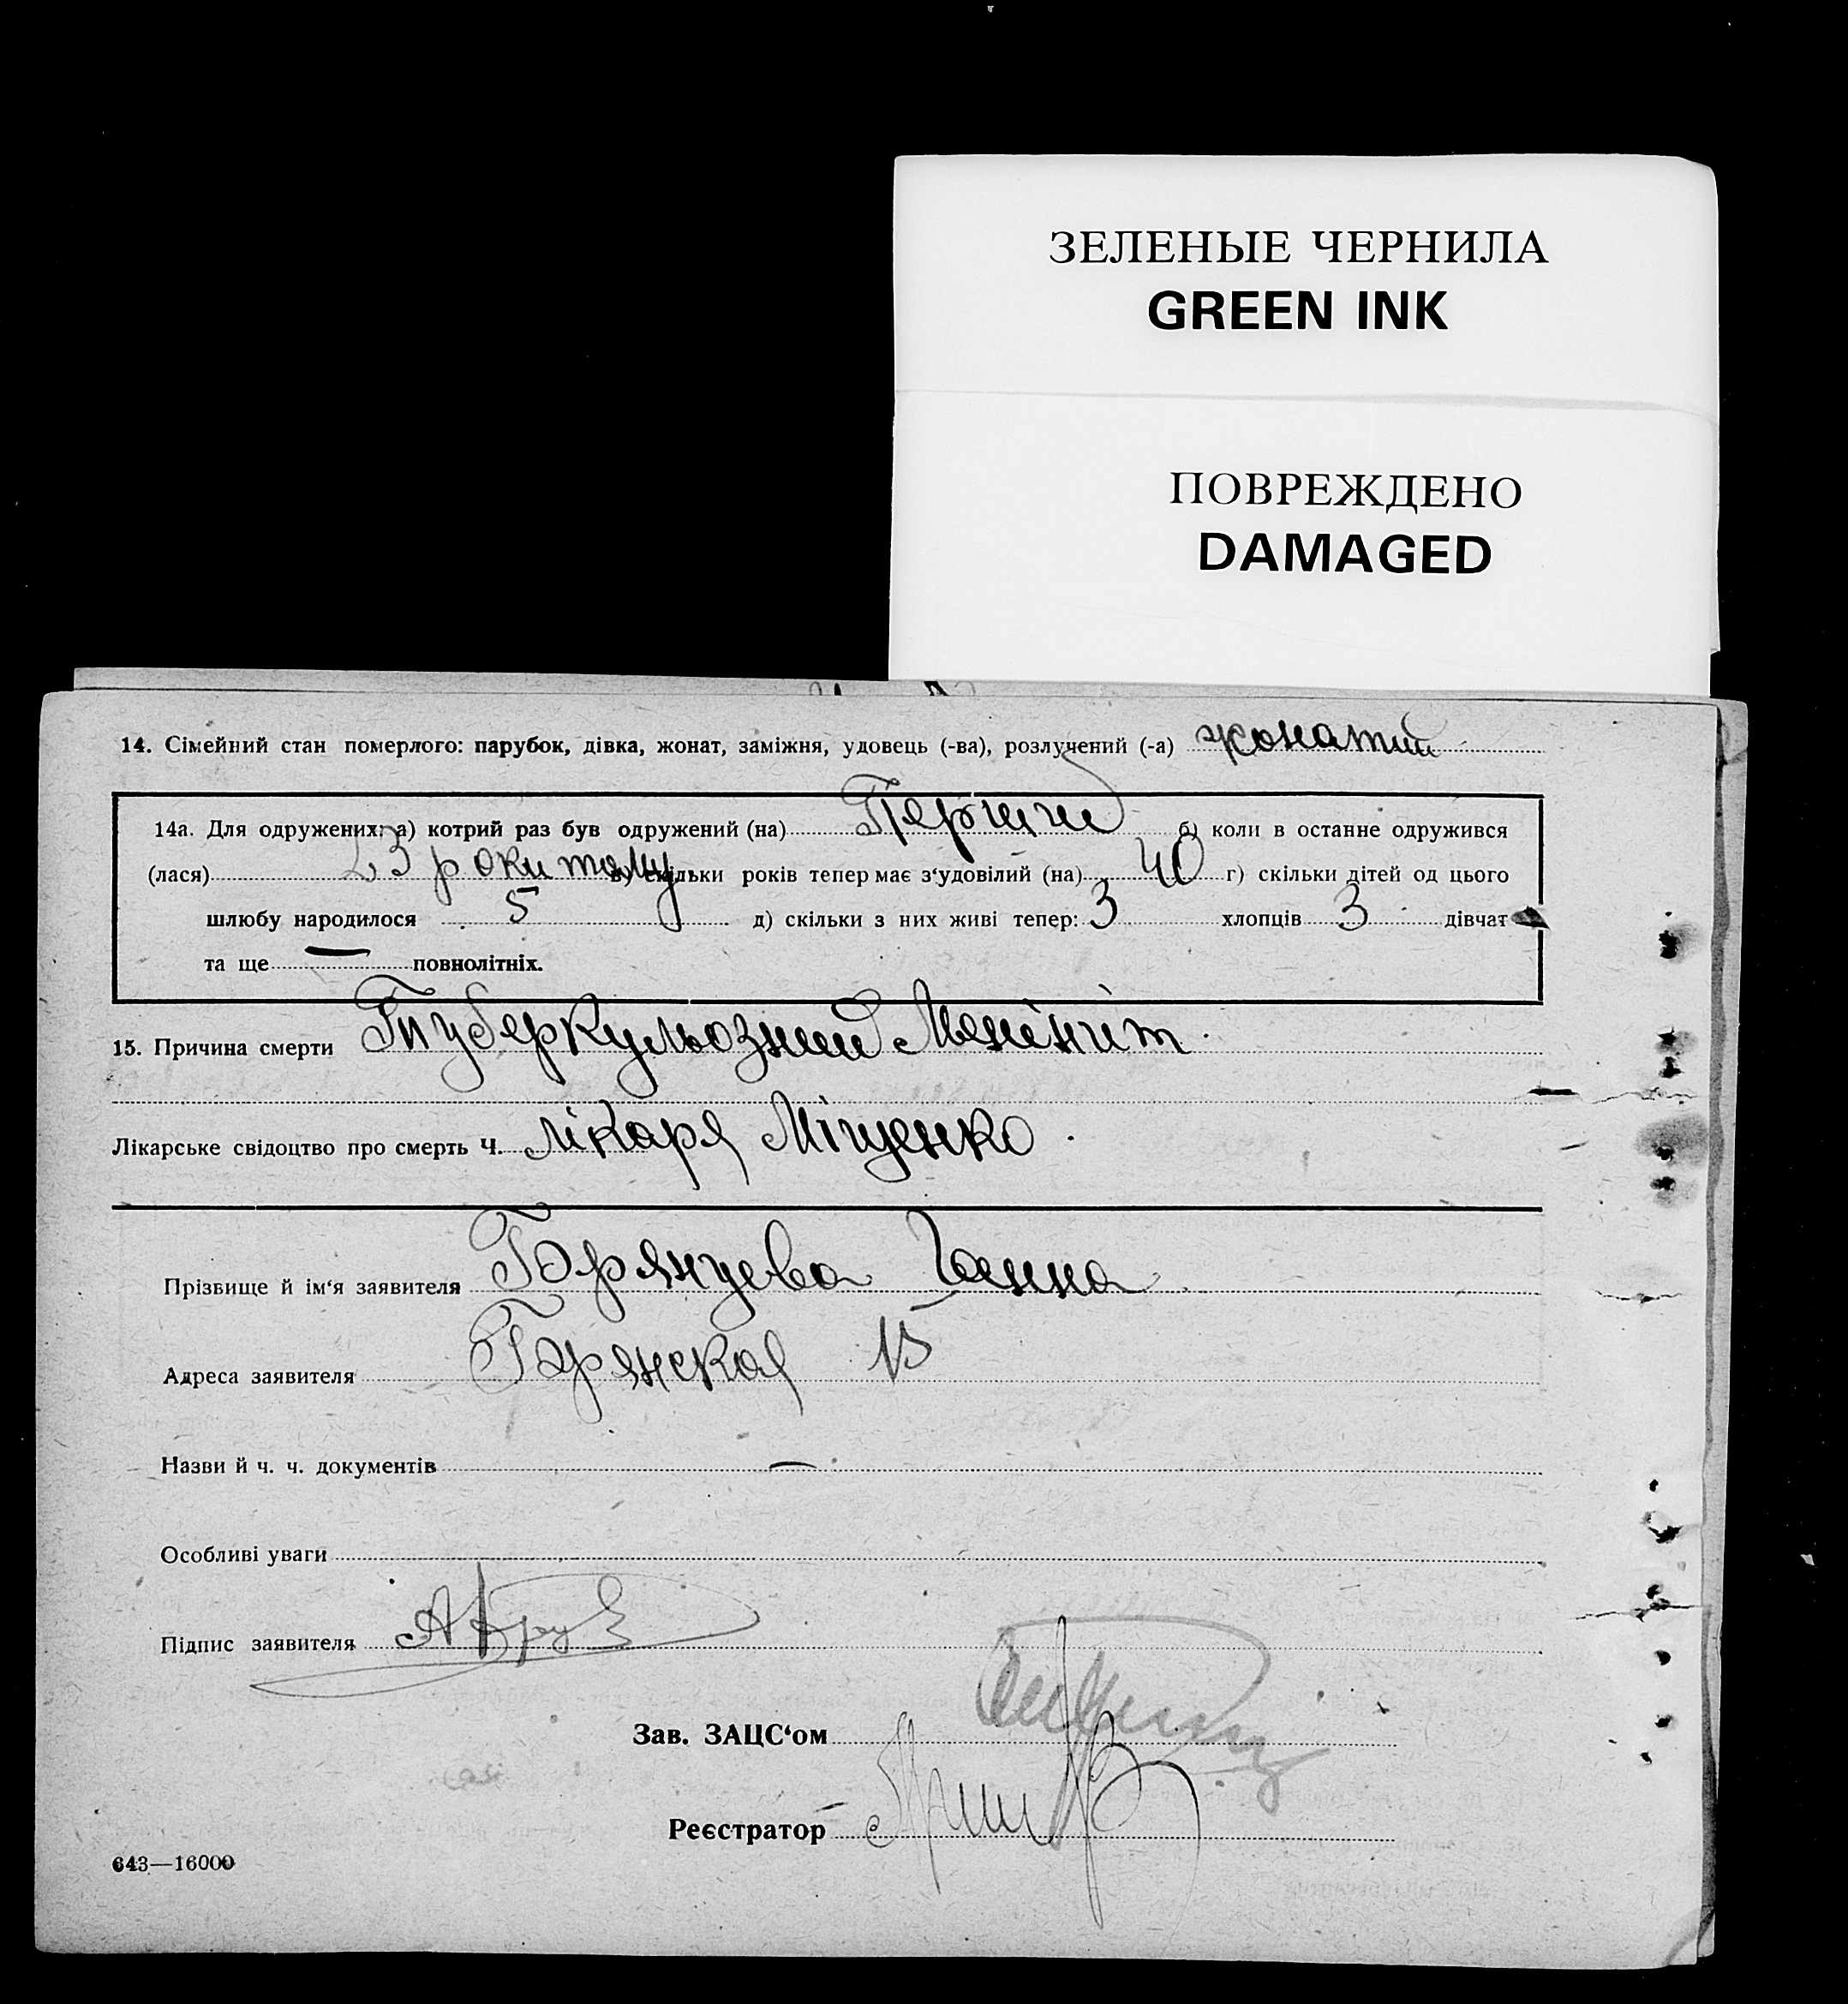 ЗЕЛЕНЫЕ ЧЕРНИЛА
GREEN INK
ПОВРЕЖДЕНО
DAMAGED
14. Сімейний стан померлого: парубок, дівка, жонат, заміжня, удовець (-ва), розлучений (-а) жонатий
14а. Для одружених: а) котрий раз був одружений (на) Перший б) коли в останне одружився
(лася) 23 роки тому в) скільки років тепер має з‘удовілий (на) 40 г) скільки дітей од цього
шлюбу народилося 5 д) скільки з них живі тепер: 3 хлопців 3 дівчат
та ще — повнолітніх.
15. Причина смерти Туберкульозний Менінгіт
Лікарське свідоцтво про смерть Ч. лікаря Міщенко
Прізвище й ім‘я заявителя Брянцева Ганна
Адреса заявителя Брянская 13
Назви й ч. ч. документів —
Особливі уваги
Підпис заявителя
Зав. ЗАЦС‘ом
Реєстратор
643—16000